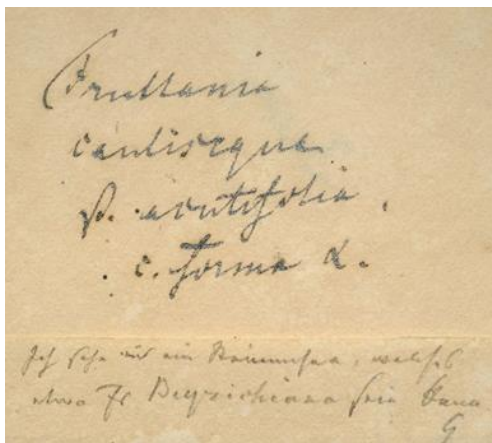 Frullania
caulisequa
β. acutifolia.
c. forma α.
Ich sehe nur ein Stämmchen, welches
etwa Fr Beyrichiana sein kann
G